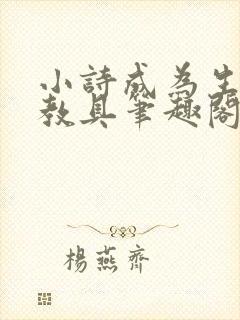 小詩成為生
教具筆趣閣
楊燕齊